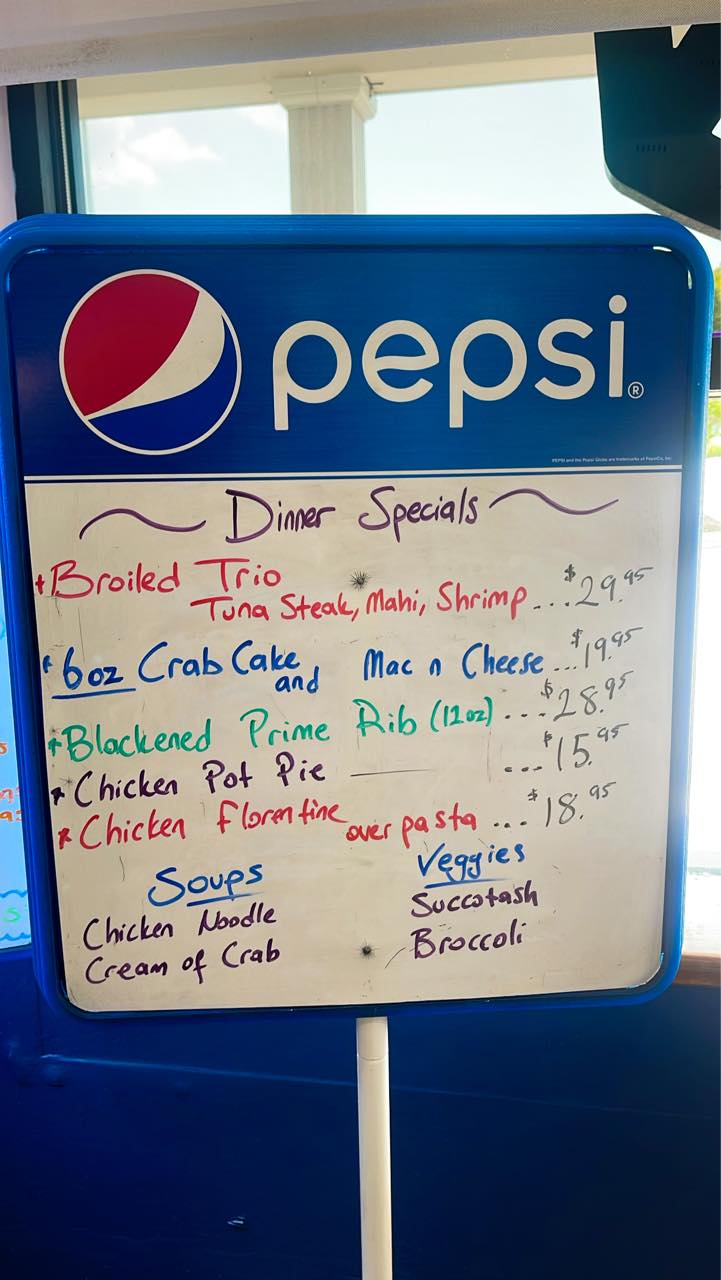 pepsi®
PEPSI and the Pepsi Globe are trademarks of PepsiCo, Inc.
Dinner Specials
Broiled Trio
Tuna Steak, Mahi, Shrimp ... $29.95
6oz Crab Cake and Mac n Cheese ... $19.95
Blackened Prime Rib (12oz) ... $28.95
* Chicken Pot Pie ... $15.95
* Chicken Florentine over pasta ... $18.95
Soups
Chicken Noodle
Cream of Crab
Veggies
Succotash
Broccoli